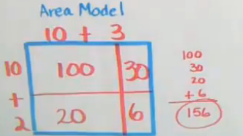 Area Model
10 + 3
10 100 30
+
2 20 6
100
30
20
+ 6
156